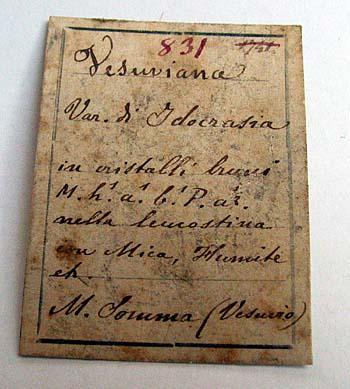 831
Vesuviana
Var. di Idocrasia
in cristalli bruni
M. h¹. a¹. b¹. P. a¹.
nella leucostina
con Mica, Humite
etc.
M. Somma (Vesuvio)